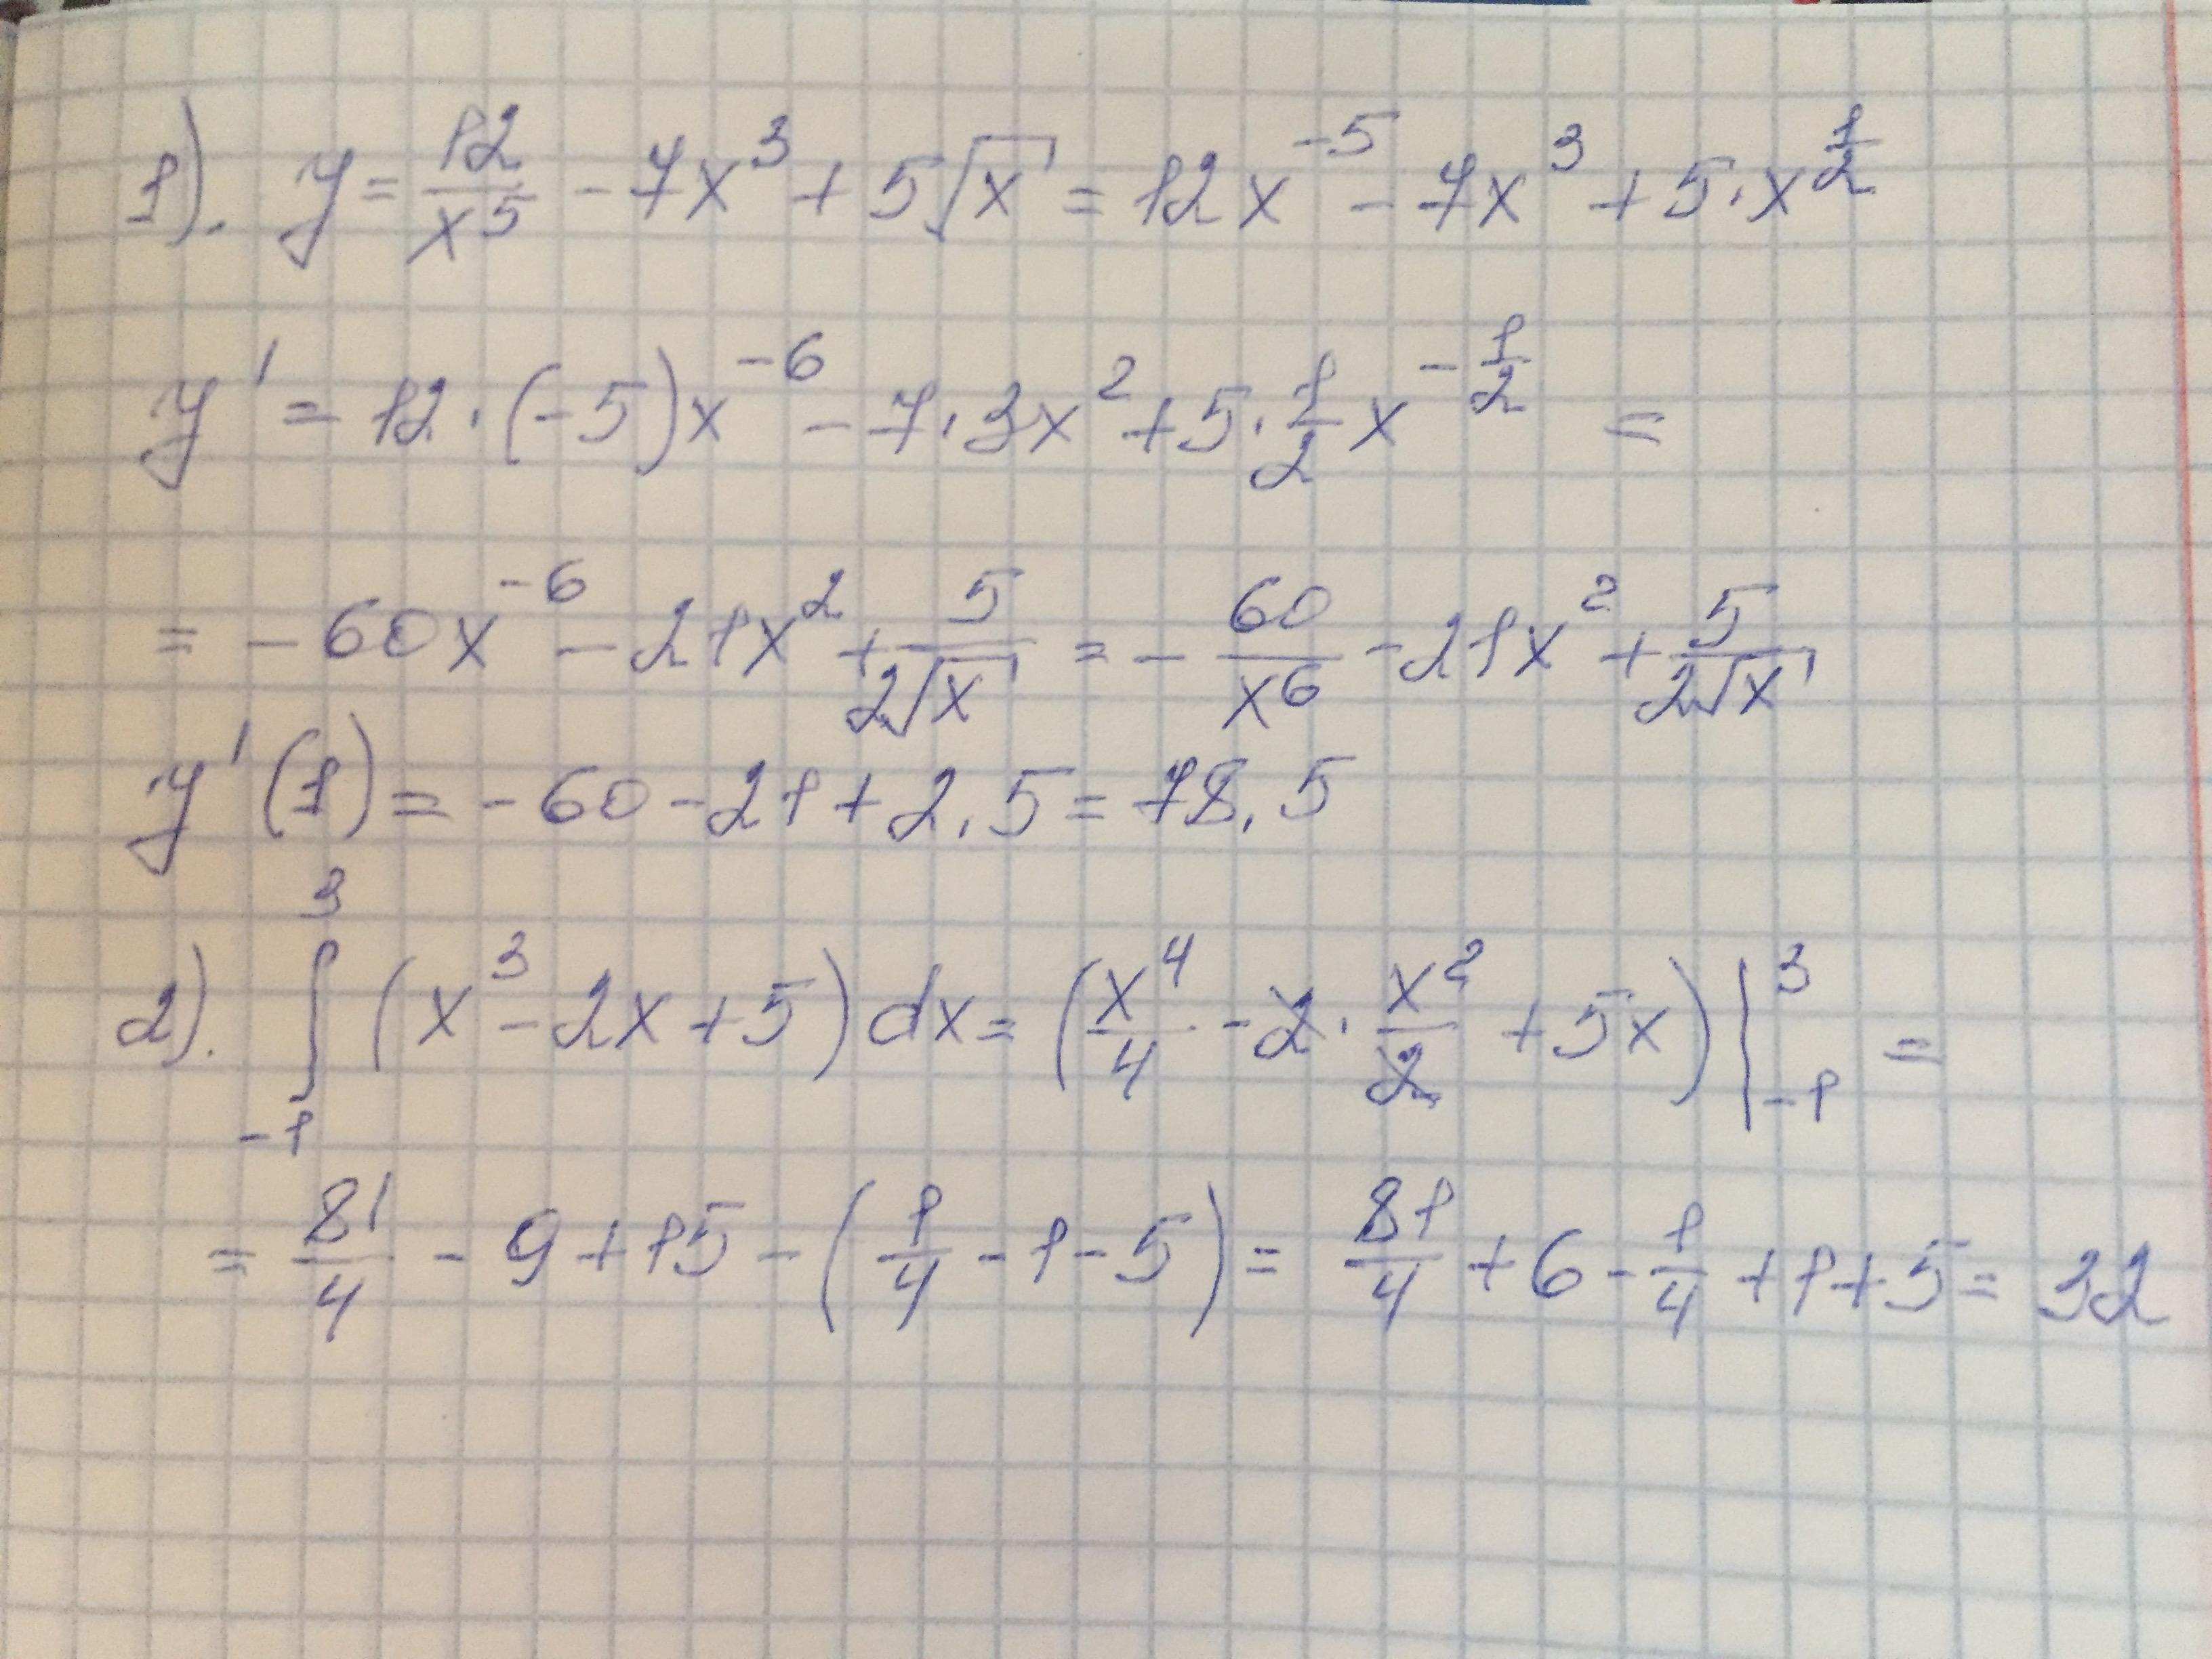 1). y = 12/x⁵ - 7x³ + 5√x = 12x⁻⁵ - 7x³ + 5·x^(1/2)
y' = 12·(-5)x⁻⁶ - 7·3x² + 5·1/2 x^(-1/2) =
= -60x⁻⁶ - 21x² + 5/(2√x) = -60/x⁶ - 21x² + 5/(2√x)
y'(1) = -60 - 21 + 2.5 = 78.5
2). ∫₋₁³ (x³ - 2x + 5) dx = (x⁴/4 - 2·x²/2 + 5x)|₋₁³ =
= 81/4 - 9 + 15 - (1/4 - 1 - 5) = 81/4 + 6 - 1/4 + 1 + 5 = 32